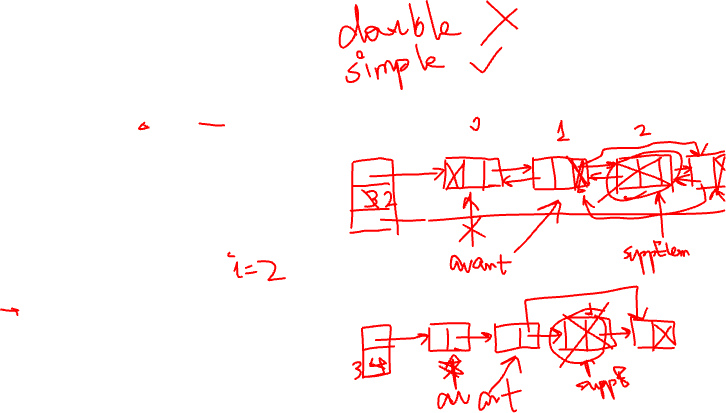 double
simple
0 1 2
2
avant
suppElem
i=2
3
avant
suppE